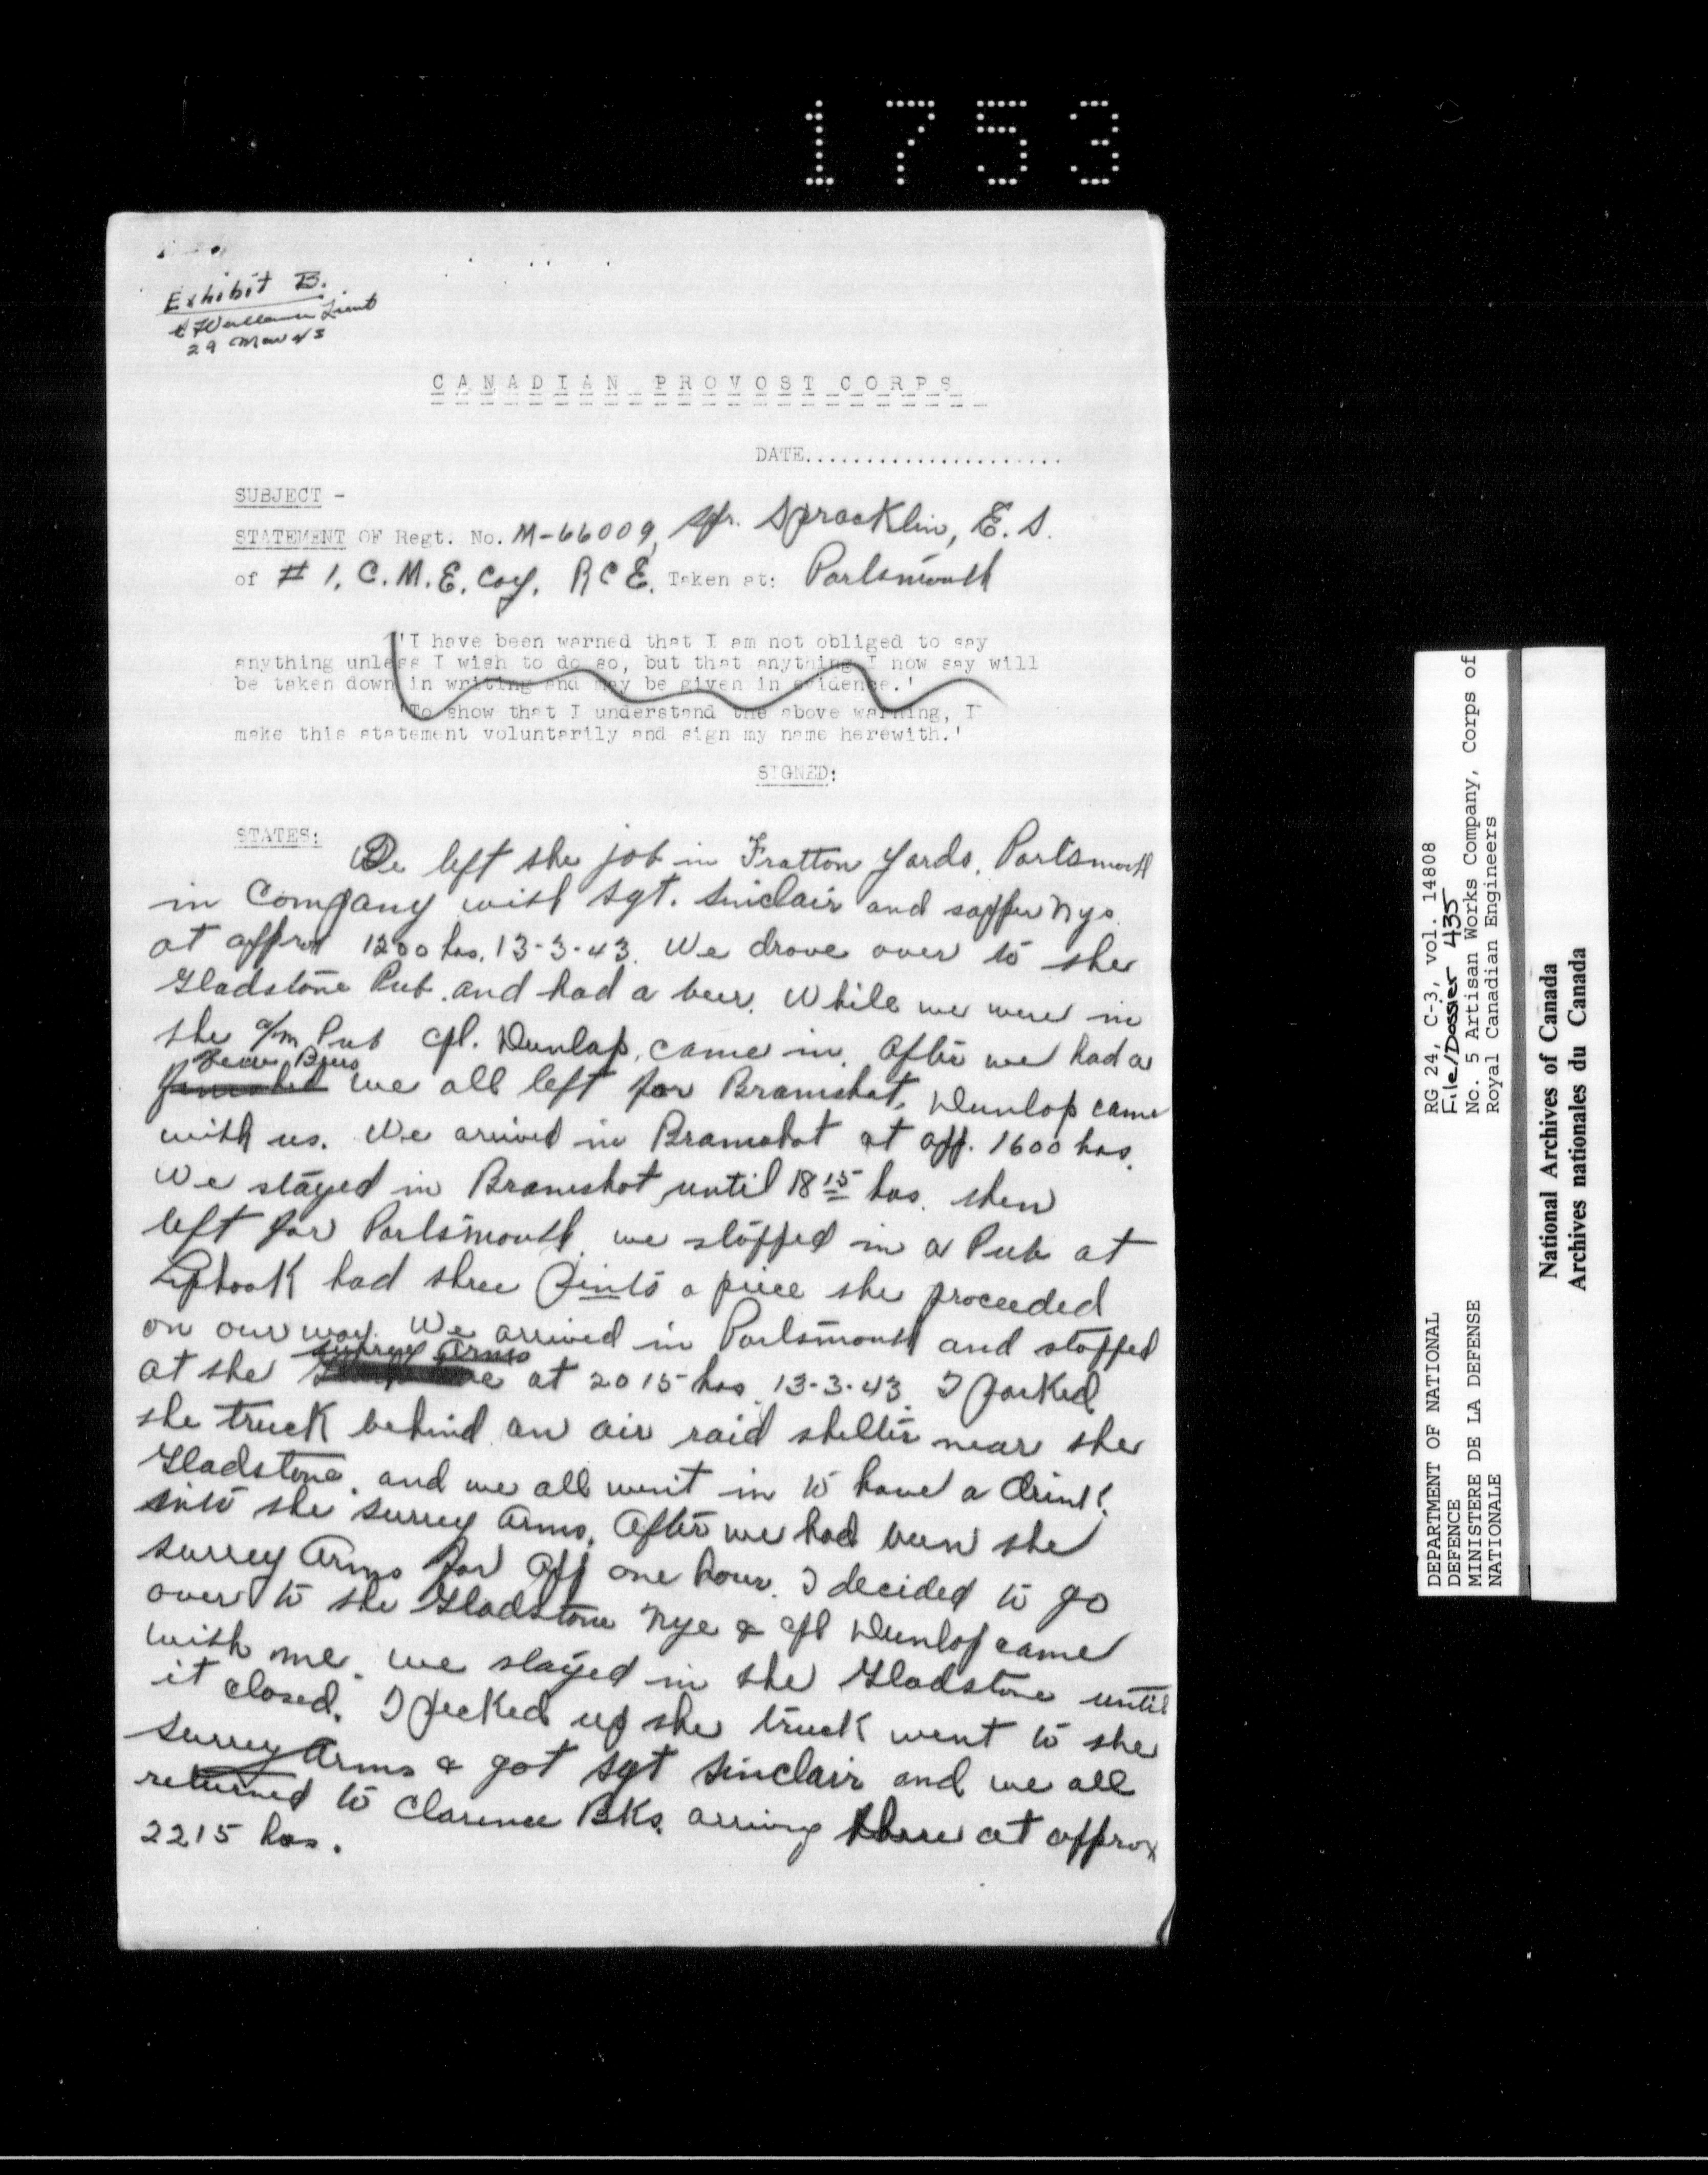 1753
Exhibit B.
Lieut
29 Mar 43
CANADIAN PROVOST CORPS
DATE.....................
SUBJECT -
STATEMENT OF Regt. No. M-66009, Spr. Spracklin, E. S.
of # 1. C. M. E. Coy. R C E. Taken at: Portsmouth
'I have been warned that I am not obliged to say
anything unless I wish to do so, but that anything I now say will
be taken down in writing and may be given in evidence.'
'To show that I understand the above warning, I
make this statement voluntarily and sign my name herewith.'
SIGNED:
STATES:
We left the job in Fratton Yards, Portsmouth
in Company with Sgt. Sinclair and sapper Nye.
at approx 1200 hrs. 13-3-43. We drove over to the
Gladstone Pub. and had a beer. While we were in
the a/m Pub Cpl. Dunlap, came in. After we had a
few Beers
we all left for Bramshot, Dunlop came
with us. We arrived in Bramshot at app. 1600 hrs.
We stayed in Bramshot until 1815 hrs. then
left for Portsmouth. we stopped in a Pub at
Liphook had three pints a piece the proceeded
on our way. We arrived in Portsmouth and stopped
Surrey Arms
at the at 2015 hrs. 13-3-43. I parked
the truck behind an air raid shelter near the
Gladstone. and we all went in to have a drink.
into the Surrey Arms. After we had been the
Surrey Arms for app one hour. I decided to go
over to the Gladstone Nye & Cpl Dunlop came
with me. we stayed in the Gladstone until
it closed. I picked up the truck went to the
Surrey Arms & got Sgt Sinclair and we all
returned to Clarence Bks. arriving there at approx
2215 hrs.
RG 24, C-3, vol. 14808
File/Dossier 435
No. 5 Artisan Works Company, Corps of
Royal Canadian Engineers
DEPARTMENT OF NATIONAL
DEFENCE
MINISTERE DE LA DEFENSE
NATIONALE
National Archives of Canada
Archives nationales du Canada